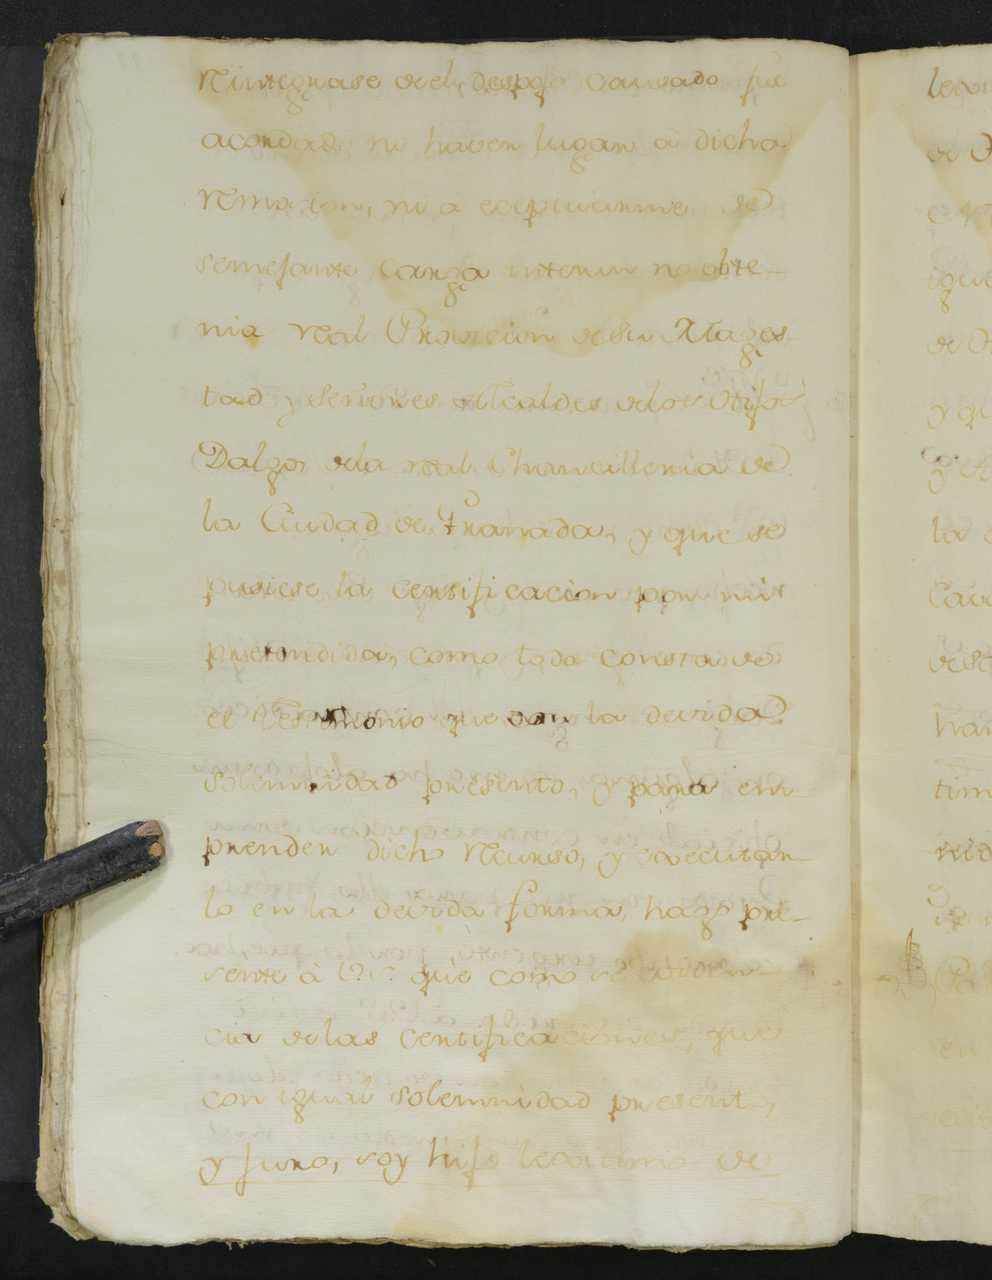 Rintegrase del despojo causado fue
acordado no haver lugar à dicha
Remazion, ni à eximirme de
semejante carga interin no obte-
nia real Provicion de su Mages-
tad y señores Alcaldes de los Hijos
Dalgo, de la real Chancilleria de
la Ciudad de Granada, y que se
pusiese la certificacion por mi
pretendida, como todo consta de
el Testimonio que con la devida
solemnidad presento, y para em-
prender dicho Recurso, y executar-
lo en la devida forma, hago pre-
sente à que como se
cia de las Certificaciones, que
con igual solemnidad presento,
y juro, soy hijo lexitimo de
lexi
de
e
igue
de
y qu
y
la
Cav
dese
han
tim
nid
Pa
en